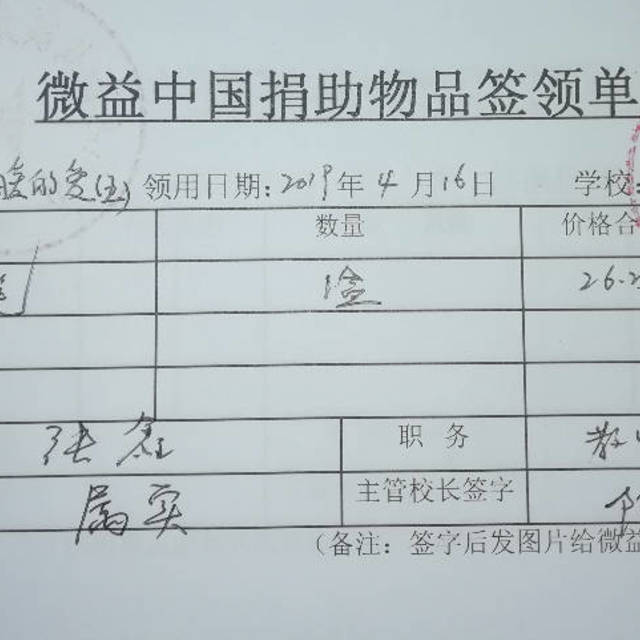 微益中国捐助物品签领单
暖的爱(五) 领用日期: 2019年4月16日 学校:
数量 价格合
1盒 26.2
张鑫 职务 教
属实 主管校长签字
(备注: 签字后发图片给微益